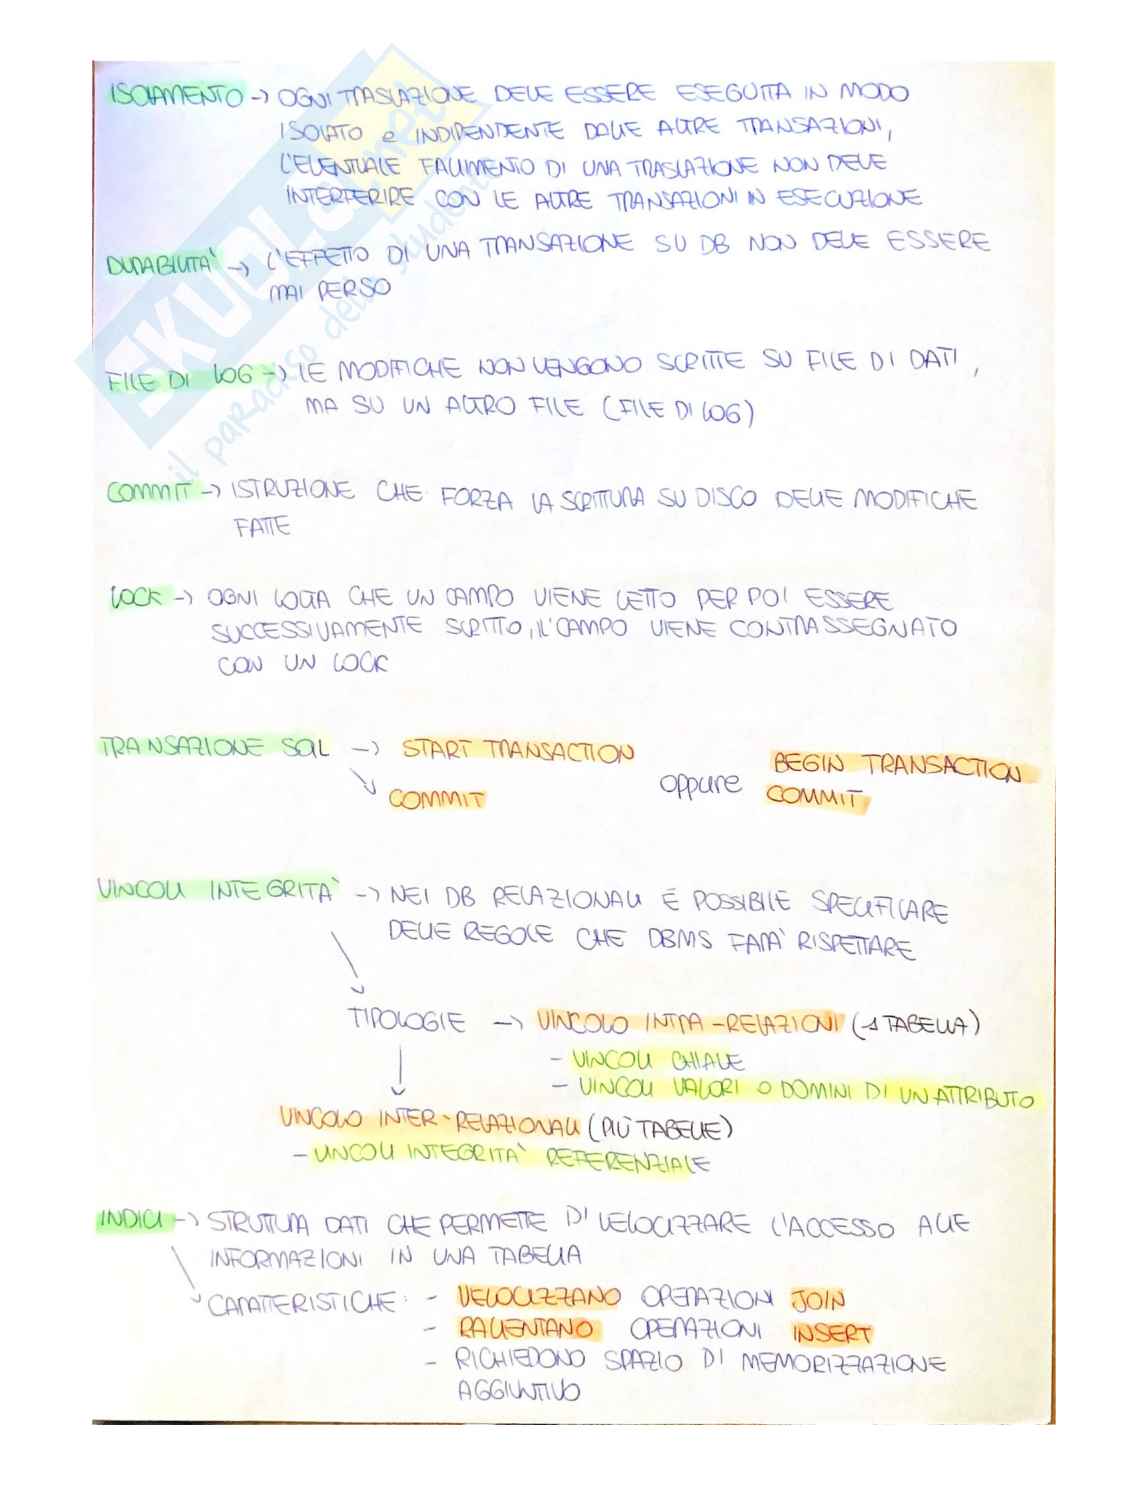 ISOLAMENTO -> OGNI TRASLAZIONE DEVE ESSERE ESEGUITA IN MODO
ISOLATO e INDIPENDENTE DALLE ALTRE TRANSAZIONI,
L'EVENTUALE FALLIMENTO DI UNA TRASLAZIONE NON DEVE
INTERFERIRE CON LE ALTRE TRANSAZIONI IN ESECUZIONE
DURABILITÀ -> L'EFFETTO DI UNA TRANSAZIONE SU DB NON DEVE ESSERE
MAI PERSO
FILE DI LOG -> LE MODIFICHE NON VENGONO SCRITTE SU FILE DI DATI,
MA SU UN ALTRO FILE (FILE DI LOG)
COMMIT -> ISTRUZIONE CHE FORZA LA SCRITTURA SU DISCO DELLE MODIFICHE
FATTE
LOCK -> OGNI VOLTA CHE UN CAMPO VIENE LETTO PER POI ESSERE
SUCCESSIVAMENTE SCRITTO, IL CAMPO VIENE CONTRASSEGNATO
CON UN LOCK
TRANSAZIONE SQL -> START TRANSACTION
COMMIT
oppure
BEGIN TRANSACTION
COMMIT
VINCOLI INTEGRITÀ -> NEI DB RELAZIONALI È POSSIBILE SPECIFICARE
DELLE REGOLE CHE DBMS FARÀ RISPETTARE
TIPOLOGIE -> VINCOLO INTRA-RELAZIONI (1 TABELLA)
- VINCOLI CHIAVE
- VINCOLI VALORI O DOMINI DI UN ATTRIBUTO
VINCOLO INTER-RELAZIONALI (PIÙ TABELLE)
- VINCOLI INTEGRITÀ REFERENZIALE
INDICI -> STRUTTURA DATI CHE PERMETTE DI VELOCIZZARE L'ACCESSO ALLE
INFORMAZIONI IN UNA TABELLA
CARATTERISTICHE: - VELOCIZZANO OPERAZIONI JOIN
- RALLENTANO OPERAZIONI INSERT
- RICHIEDONO SPAZIO DI MEMORIZZAZIONE
AGGIUNTIVO
SKUOLA.net
il paradiso dello studente